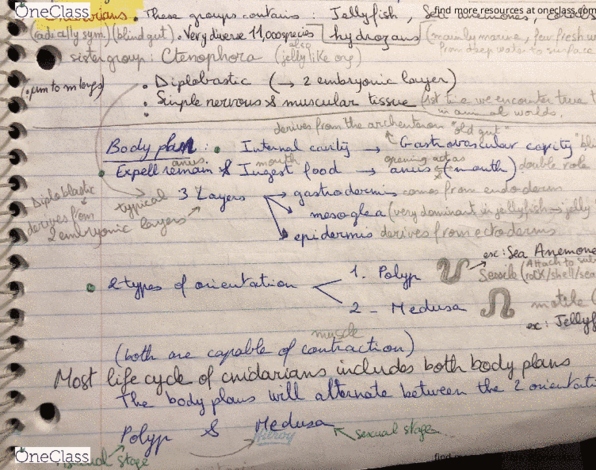 OneClass
find more resources at oneclass.com
• These groups contains : Jellyfish, Sea Anemones,
(radially sym) (blind gut) • Very diverse 11,000 species hydrozoans (mainly marine, few fresh w
from deep water to surface
sister group : Ctenophora (also jelly like org)
(µm to m long) • Diploblastic (→ 2 embryonic layer)
• Simple nervous & muscular tissue first time we encounter true t
in animal worlds.
derives from the archenteron "old gut"
Body plan : • Internal cavity → Gastrovascular cavity
opening act as
Expell remain & Ingest food → anus & (mouth) double role
anus. mouth
Diploblastic derives from 2 embryonic layers
typical 3 Layers → gastrodermis comes from endoderm
→ mesoglea (very dominant in jellyfish → jelly
→ epidermis derives from ectoderm
ex: Sea Anemone
• 2 types of orientation 1. Polyp Sessile (rock/shell/sea
Attach to
2 - Medusa motile (
ex: Jellyf
muscle
(both are capable of contraction)
Most life cycle of cnidarians includes both body plans
The body plans will alternate between the 2 orientatio
Polyp & Medusa ← sexual stage
Hilroy
OneClass
sexual stage
find